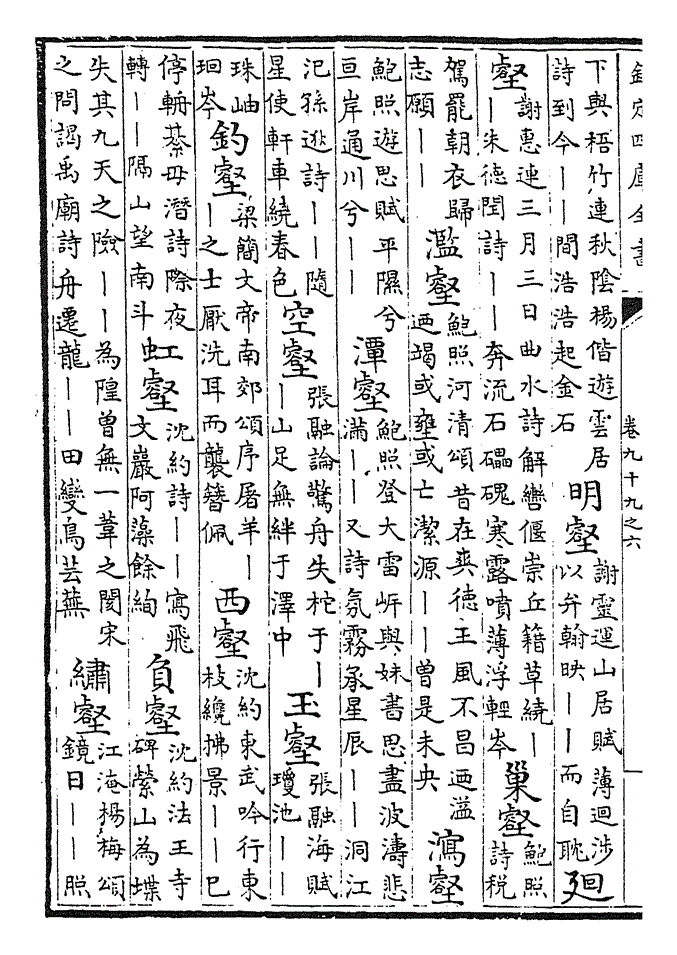 欽定四庫全書
卷九十九之六
下與梧竹連秋陰楊偕遊雲居
詩到今——間浩浩起金石
明壑
謝靈運山居賦薄迴涉
以弁翰映——而自耽
廻
壑
謝惠連三月三日曲水詩解轡偃崇丘籍草繞—
—朱德閏詩——奔流石礧磈寒露噴薄浮輕岑
巢壑
鮑照
詩税
駕罷朝衣歸
志願——
濫壑
鮑照河清頌昔在爽德王風不昌迺溢
迺竭或壅或亡潔源——曾是未央
瀉壑
鮑照遊思賦平隰兮
亘岸通川兮——
潭壑
鮑照登大雷岸與妹書思盡波濤悲
滿——又詩氛霧承星辰——洞江
汜孫逖詩——隨
星使軒車繞春色
空壑
張融論驚舟失柁于—
—山足無絆于澤中
玉壑
張融海賦
瓊池——
珠岫
珋岑
釣壑
梁簡文帝南郊頌序屠羊—
—之士厭洗耳而襲簪佩
西壑
沈約東武吟行東
枝纜拂景——巳
停輈綦毋潛詩際夜
轉——隔山望南斗
虹壑
沈約詩——寫飛
文巖阿藻餘絢
負壑
沈約法王寺
碑縈山為堞
失其九天之險——為隍曾無一葦之閡宋
之問謁禹廟詩舟遷龍——田變鳥芸蕪
繡壑
江淹楊梅頌
鏡日——照